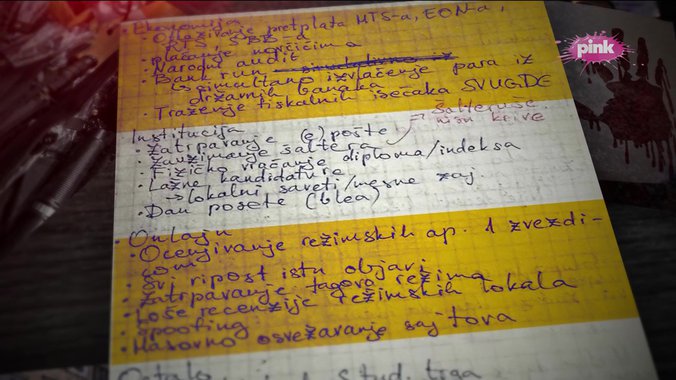 Ekonomija
• Otkazivanje pretplata MTS-a, EON-a,
RTS, SBB-a
• plaćanje novčićima
• Narodni audit
• Bank run
↳ simultano izvlačenje para iz
državnih banaka
• Traženje fiskalnih isečaka SVUGDE
Institucija
• Zatrpavanje (e)pošte
šalteruše
nisu krive
• Zauzimanje šaltera
• Fizičko vraćanje diploma/indeksa
• Lažne kandidature
→ lokalni saveti/mesne zaj.
• Dan posete (blea)
• Onlajn
• Ocenjivanje režimskih ap. 1 zvezdi-
com
• Svi ripost istu objavi
• Zatrpavanje tagova režima
• Loše recenzije režimskih lokala
• Spoofing
• Masovno osvežavanje sajtova
pink